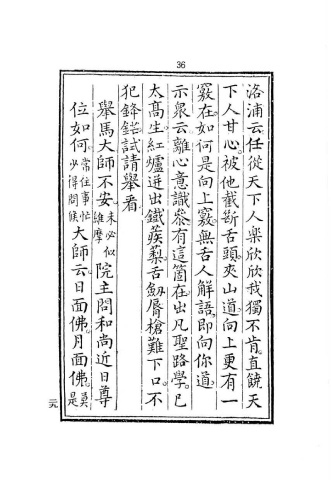 36
洛浦云任從天下人樂欣欣我獨不肯直饒天
下人甘心被他截斷舌頭夾山道向上更有一
竅在如何是向上竅無舌人解語即向你道
示眾云離心意識參有這箇在出凡聖路學已
太高生紅爐迸出鐵蒺藜舌劍脣槍難下口不
犯鋒鋩試請舉看
舉馬大師不安未必似維摩院主問和尚近日尊
位如何常住事忙必得問候大師云日面佛月面佛是
二六